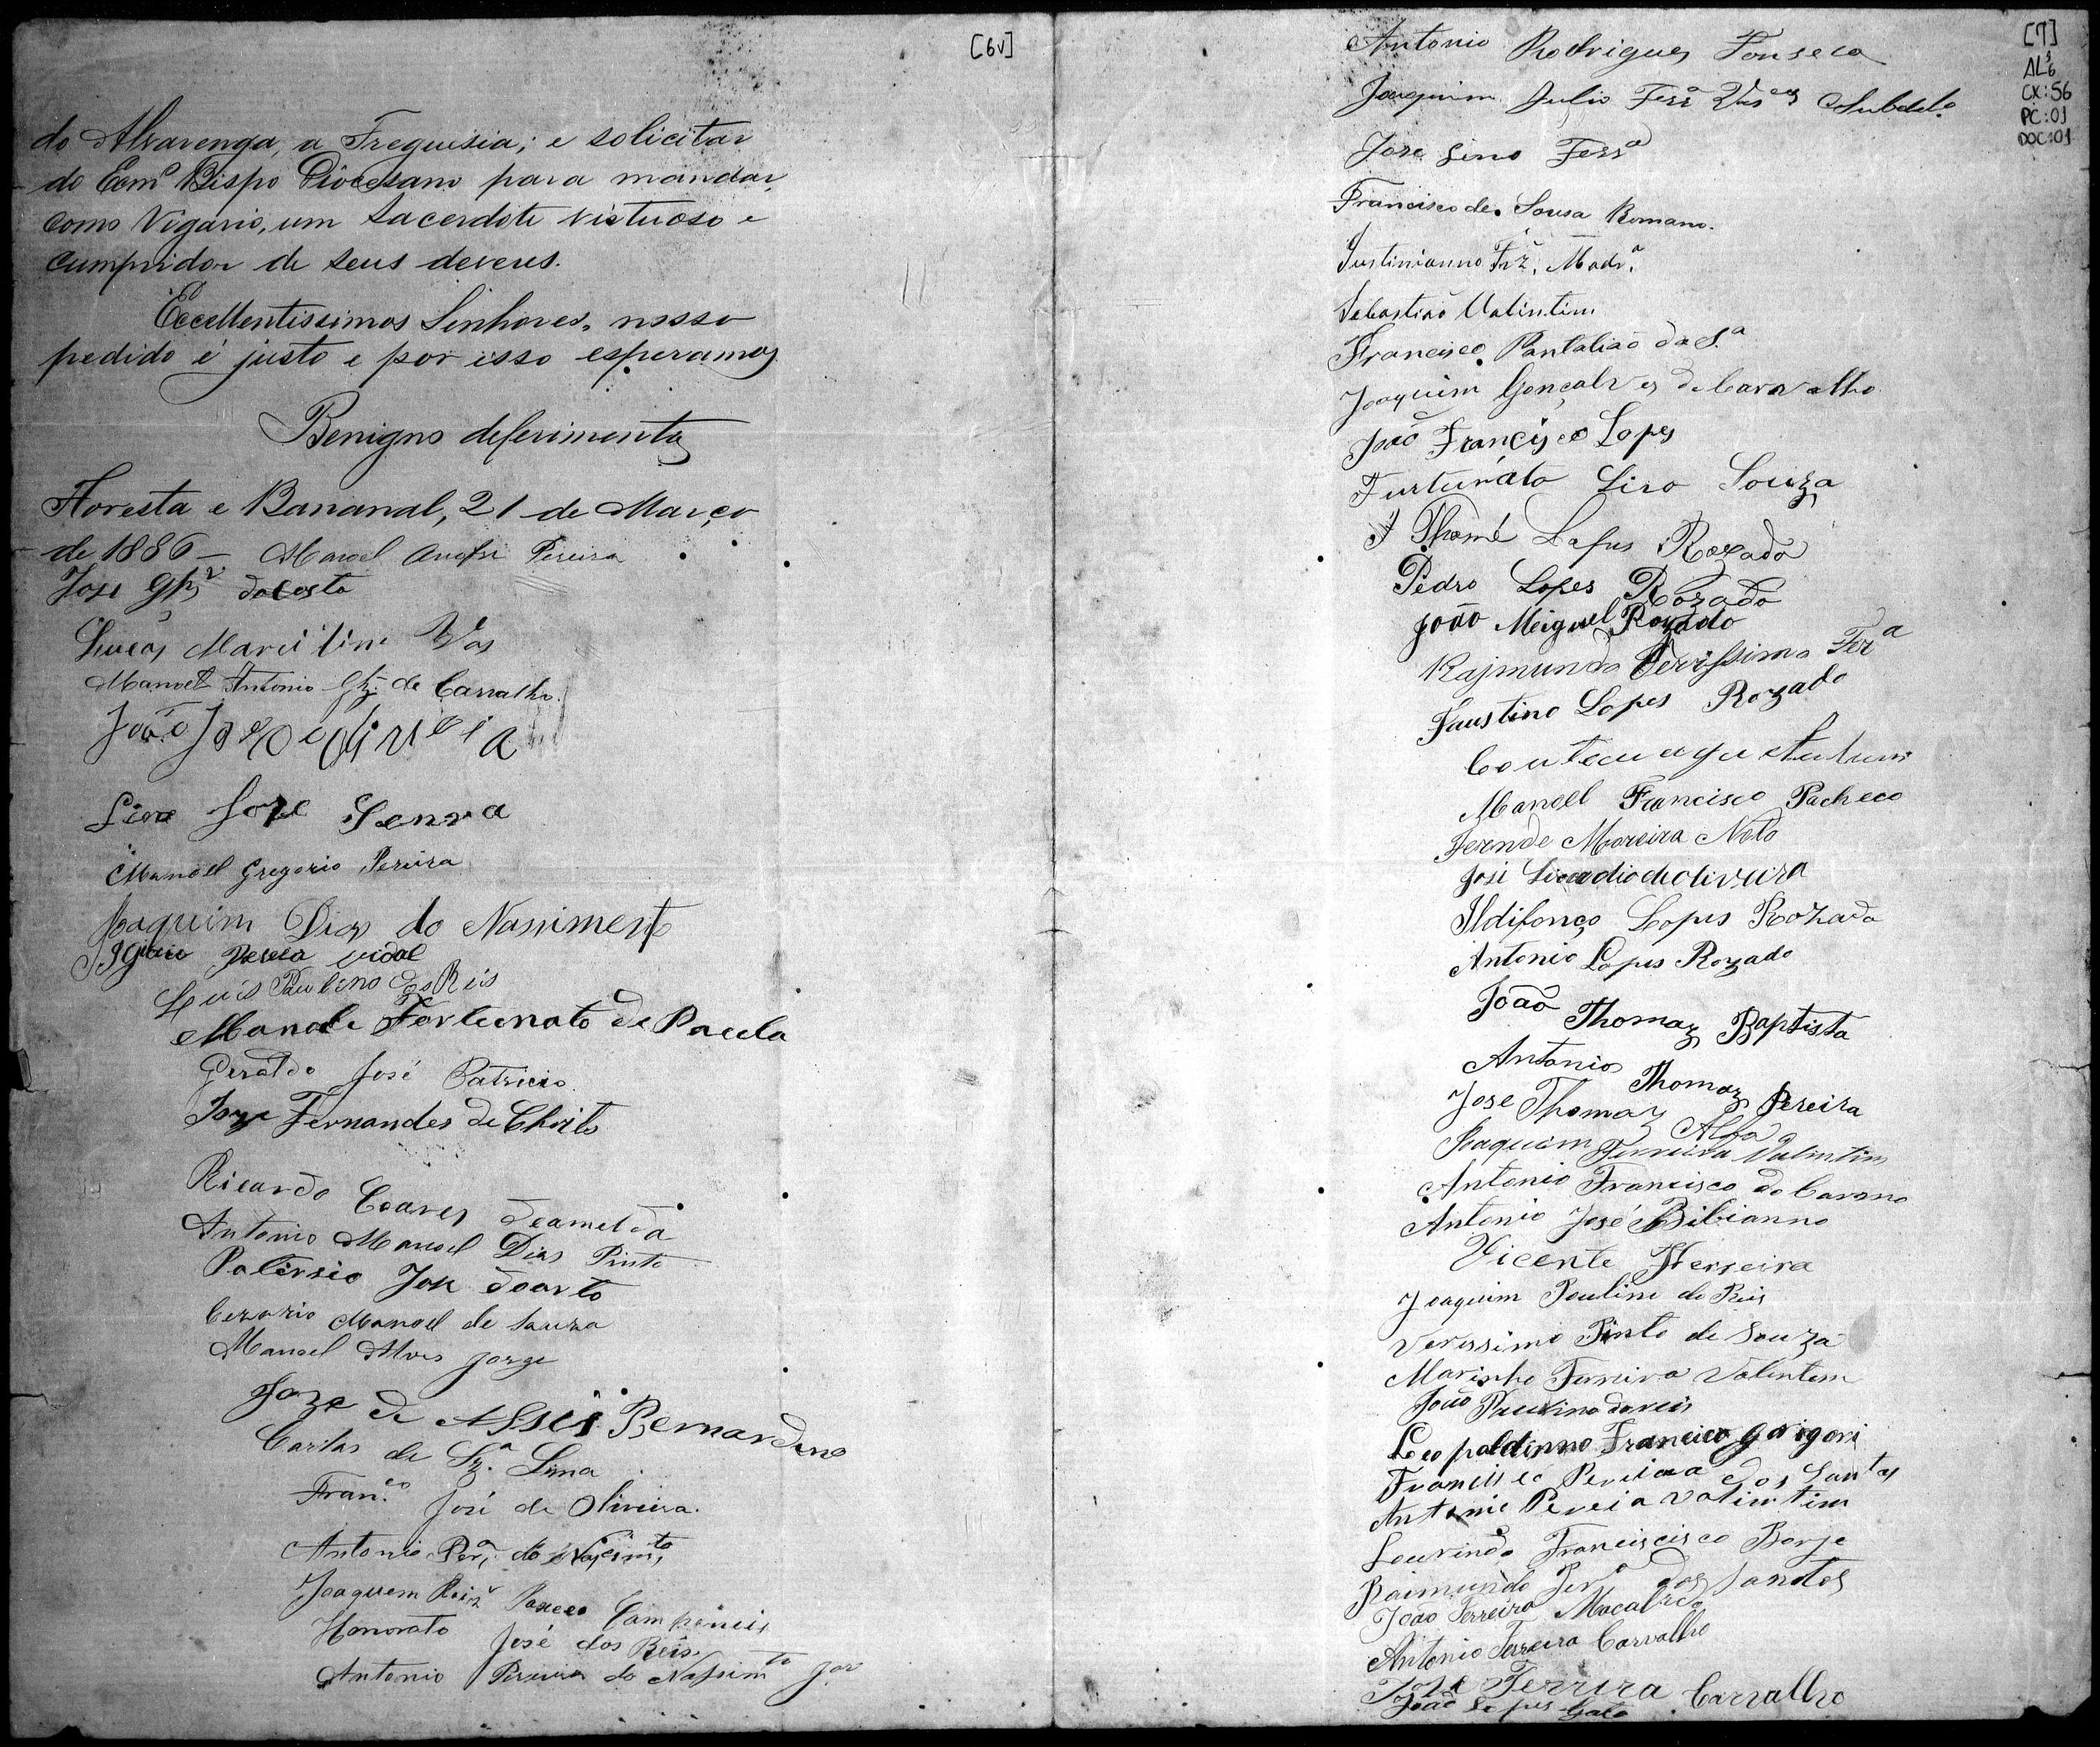 [6v]
do Alvarenga, a Freguesia; e solicitar
do Exmº Bispo Diocesano para mandar,
como Vigario, um Sacerdote virtuoso e
cumpridor de seus deveres.
Excellentissimos Senhores, nosso
pedido é justo e por isso esperamos
Benigno deferimento
Floresta e Bananal, 21 de Março
de 1886 — Manoel Pereira
José Glz da Costa
Lucas Marcilino
Manoel Antonio Glz de Carvalho.
João Joze
Joze
Manoel Gregorio Pereira
Joaquim Dias do Nassimento
vidal
Luis Paulino dos Reis
Manoel Fortunato de Paula
Geraldo José Patricio
Joze Fernandes de Christo
Ricardo Soares deameida
Antonio Manoel Dias Pinto
Jose doarto
Cezario Manoel de Souza
Manoel Alves Jorge
Joze de Assis Bernardino
Carlos de Sz.ª Lima
Fran.co José de Oliveira.
Antonio Per.ª do Nascim.to
Joaquem
Honorato José dos Reis
Antonio Pereira do Nassim.to Jor
[7]
AL³6
CX:56
PC:01
DOC:01
Antonio Rodrigues Fonseca
Joaquim Julio Ferrª Subdel.º
Jose Lino Ferrª
Francisco de Sousa Romano.
Justinianno Frz. Madr.ª
Sebastião Valintim
Francisco Pantalião da S.ª
Joaquim Gonçalves de Caravalho
João Francisco Lopes
Furtunato Liro Souza
Thomé Lopes Rozado
Pedro Lopes Rozado
João Meiguel Rozado
Rajmundo Verissimo Ferª
Faustino Lopes Rozado
Manoel Francisco Pacheco
Moreira Neto
José Liocadio de olivura
Ildifonço Lopes Rozado
Antonio Lopes Rozado
João Thomaz Baptista
Antonio Thomaz Pereira
Jose Thomaz
Joaquim Ferreira Valintim
Antonio Francisco do Carmo
Antonio José Bibianno
Vicente Ferreira
Joaquim Paulino do Reis
Verissimo Pinto de Souza
Marinho Ferreira Valintem
João Paulino do reis
Leopaldinno Francico
Francisco Pereira dos Santos
Antonio Pereia valintim
Lourindo Franciscisco Borje
Raimundo Perª dos Santos
João Ferreira Macalhão
Antonio Ferreira Carvalho
José Ferrera Carvalho
João Lopes Galo